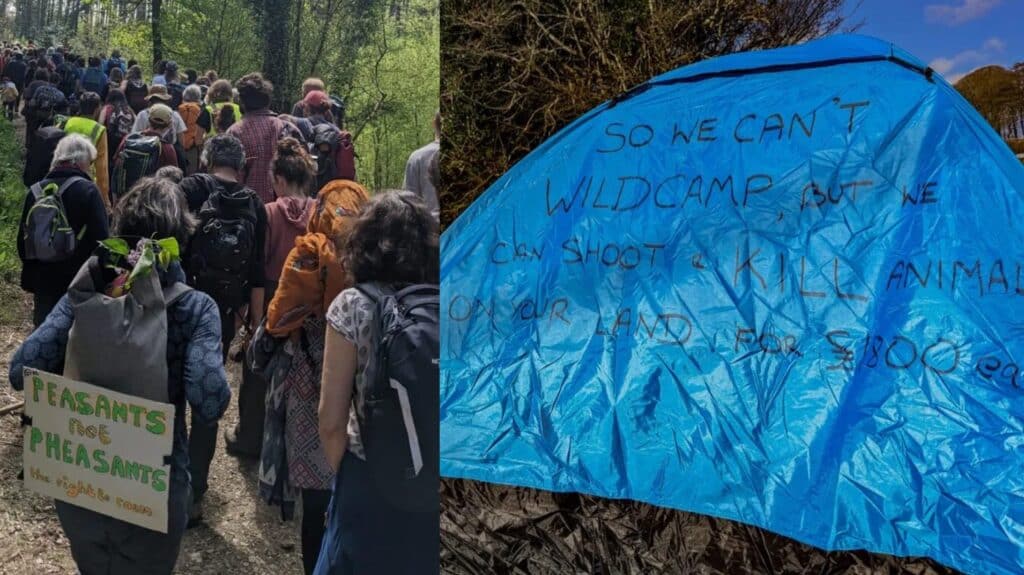 PEASANTS
not
PHEASANTS
the right to roam
SO WE CAN'T
WILDCAMP, BUT WE
CAN SHOOT & KILL ANIMAL
ON YOUR LAND FOR £1800 ea